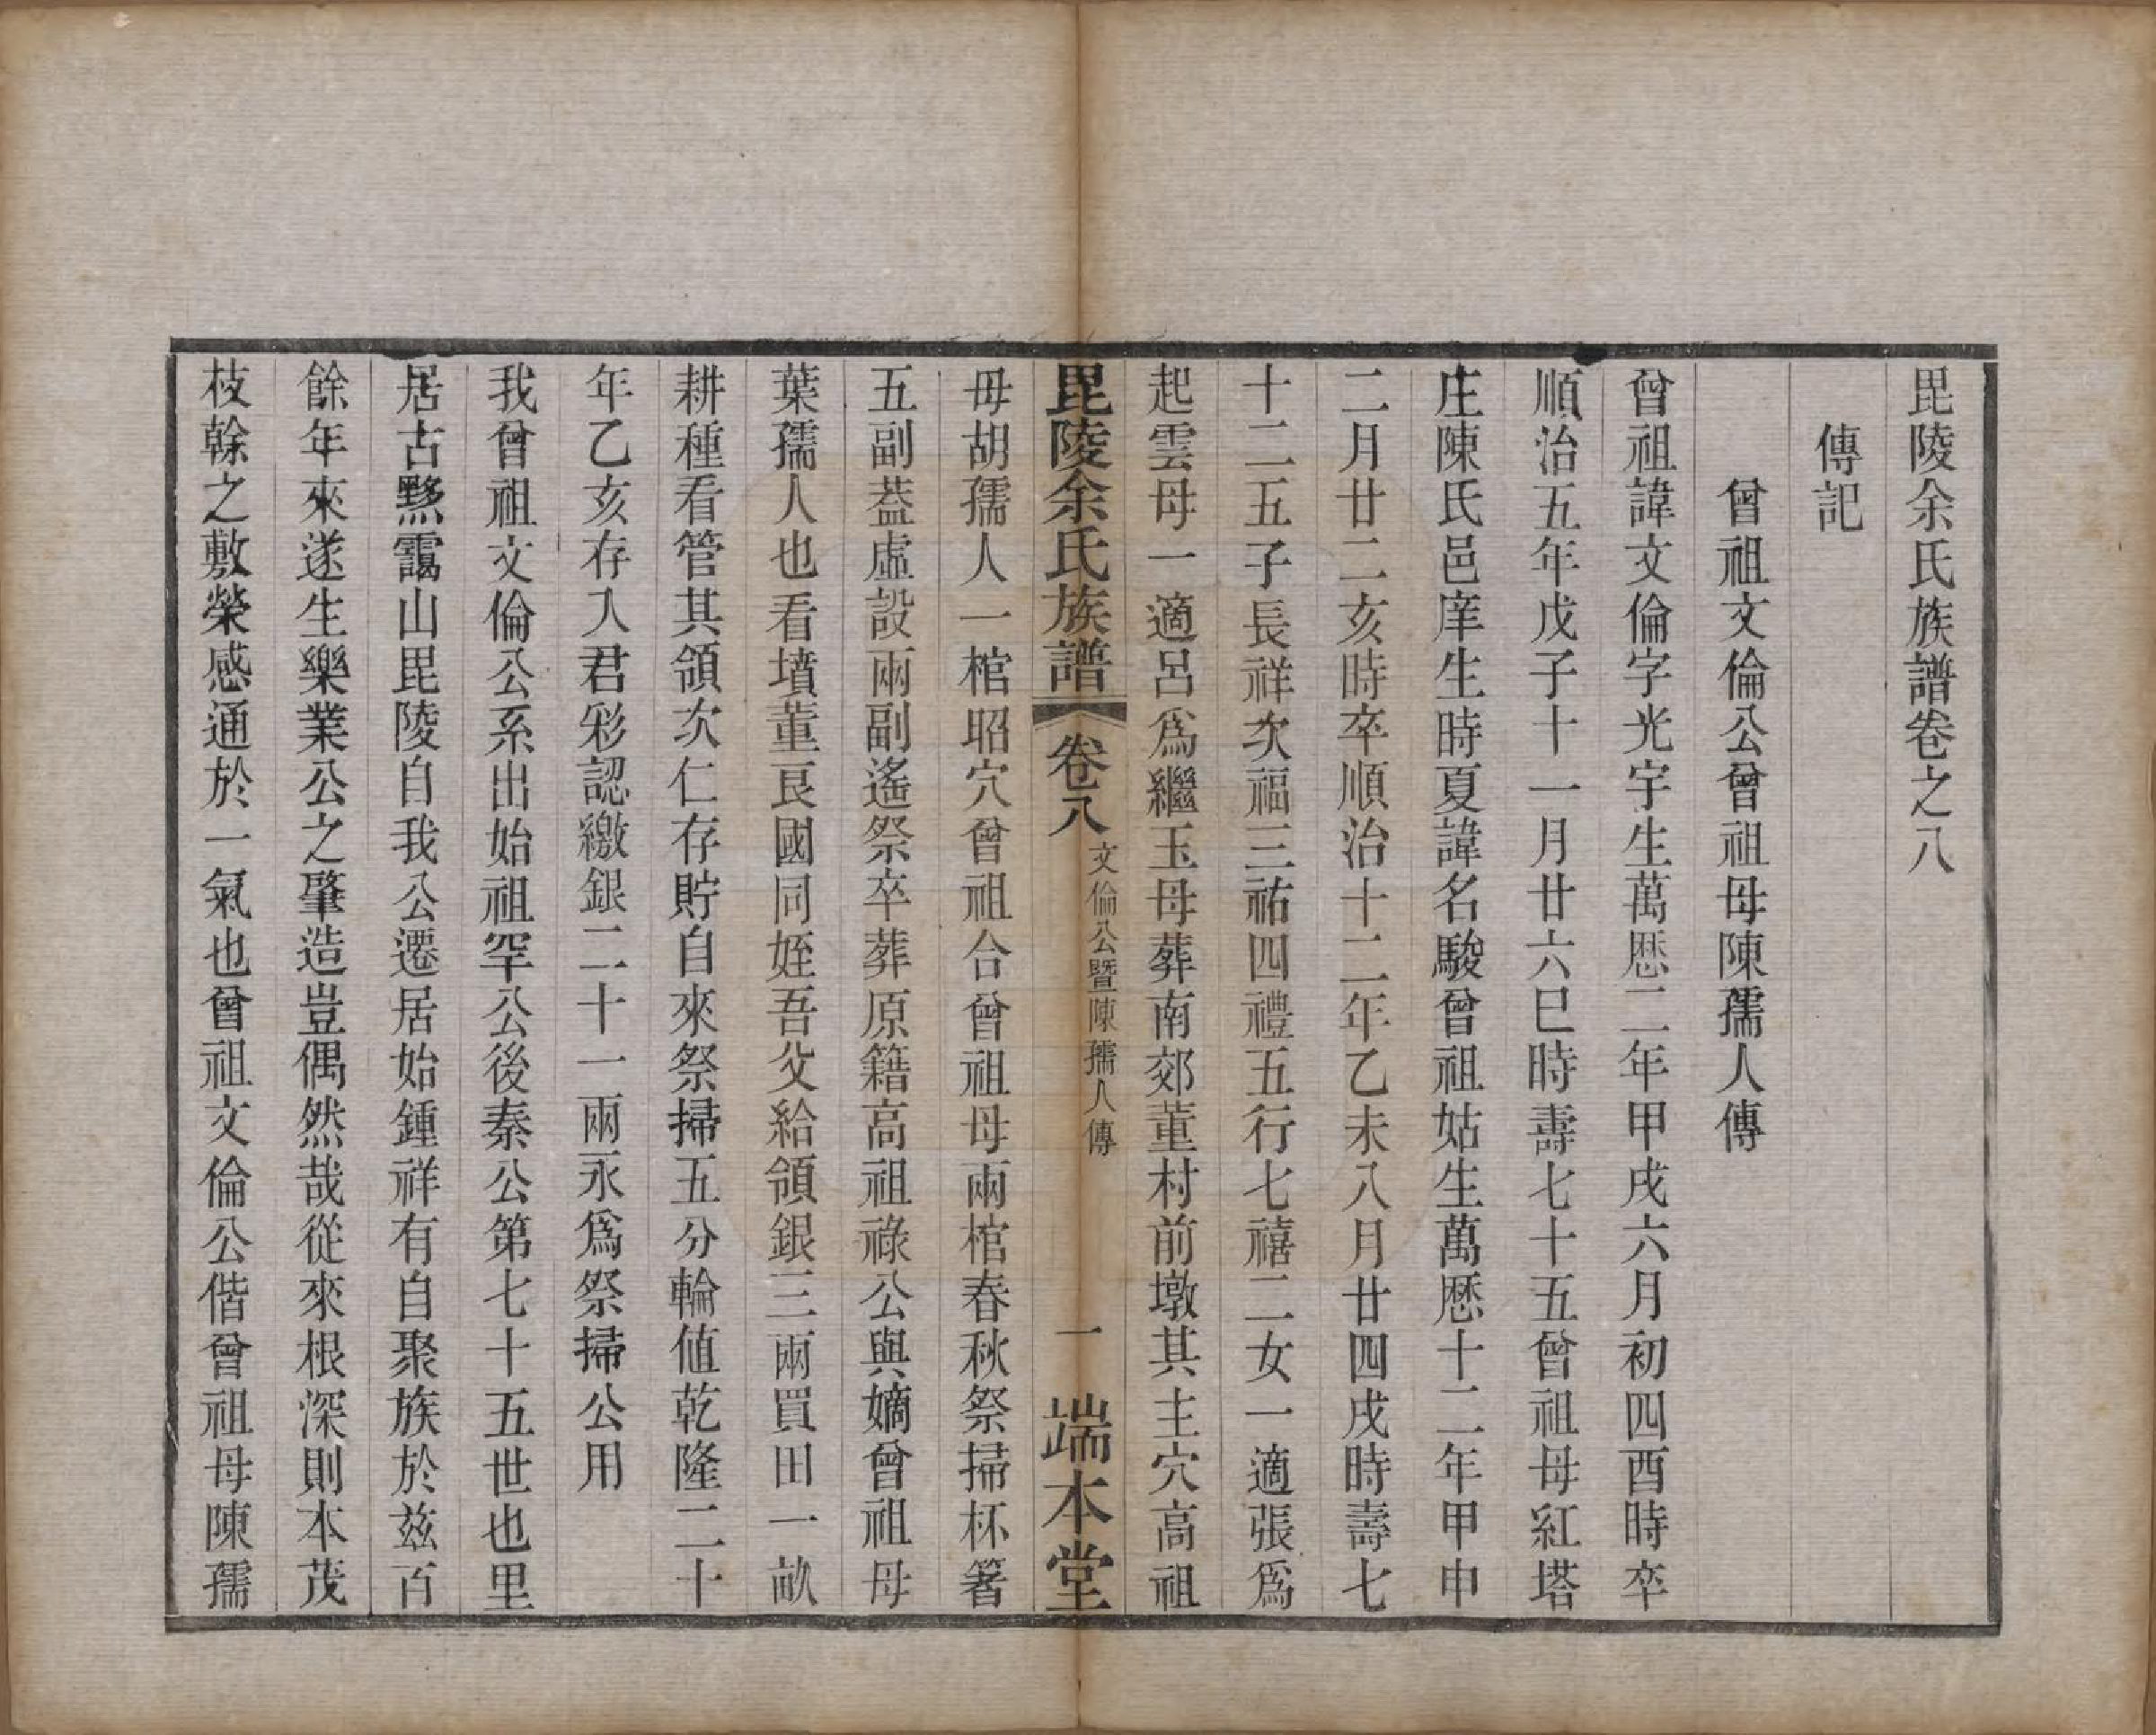 毘陵余氏族譜卷之八
傳記
曾祖文倫公曾祖母陳孺人傳
曾祖諱文倫字光宇生萬厯二年甲戌六月初四酉時卒
順治五年戊子十一月廿六巳時壽七十五曾祖母紅塔
庄陳氏邑庠生時夏諱名駿曾祖姑生萬厯十二年甲申
二月廿二亥時卒順治十二年乙未八月廿四戌時壽七
十二五子長祥次福三祐四禮五行七禧二女一適張爲
起雲母一適呂爲繼玉母葬南郊董村前墩其主穴高祖
毘陵余氏族譜 卷八 文倫公暨陳孺人傳 一 端本堂
母胡孺人一棺昭穴曾祖合曾祖母兩棺春秋祭掃杯箸
五副葢虛設兩副遙祭卒葬原籍高祖祿公與嫡曾祖母
葉孺人也看墳董艮國同姪吾父給領銀三兩買田一畝
耕種看管其領次仁存貯自來祭掃五分輪值乾隆二十
年乙亥存入君彩認繳銀二十一兩永爲祭掃公用
我曾祖文倫公系出始祖罕公後秦公第七十五世也里
居古黟靄山毘陵自我公遷居始鍾祥有自聚族於兹百
餘年來遂生樂業公之肇造豈偶然哉從來根深則本茂
枝榦之敷榮感通於一氣也曾祖文倫公偕曾祖母陳孺